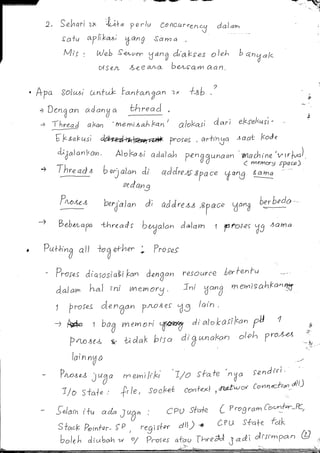 2. Sehari 2x kita perlu concurrency dalam
satu aplikasi yang sama.
Mis : Web Server yang diakses oleh banyak
user secara bersamaan.
• Apa solusi untuk tantangan 2x tsb ?
→ Dengan adanya thread.
→ Thread akan "memisahkan" alokasi dari eksekusi.
Eksekusi proses, artinya saat kode
dijalankan. Alokasi adalah penggunaan "machine virtual"
(memory space)
→ Threads berjalan di address space yang sama
sedang
Proses berjalan di address space yang berbeda
→ Beberapa threads berjalan dalam 1 proses yg sama
• Putting all together : Proses
- Proses diasosiasikan dengan resource tertentu
dalam hal ini memory. Ini yang memisahkan
1 proses dengan proses yg lain.
→ 1 bag memori yang dialokasikan pd 1
proses tidak bisa digunakan oleh proses
lainnya
- Proses juga memiliki I/O state nya sendiri.
I/O state : file, socket context, network connection, dll)
- Selain itu ada juga : CPU State (Program Counter_PC,
Stack Pointer_SP, register dll) → CPU state tak
boleh diubah u/ Proses atau Thread jadi disimpan